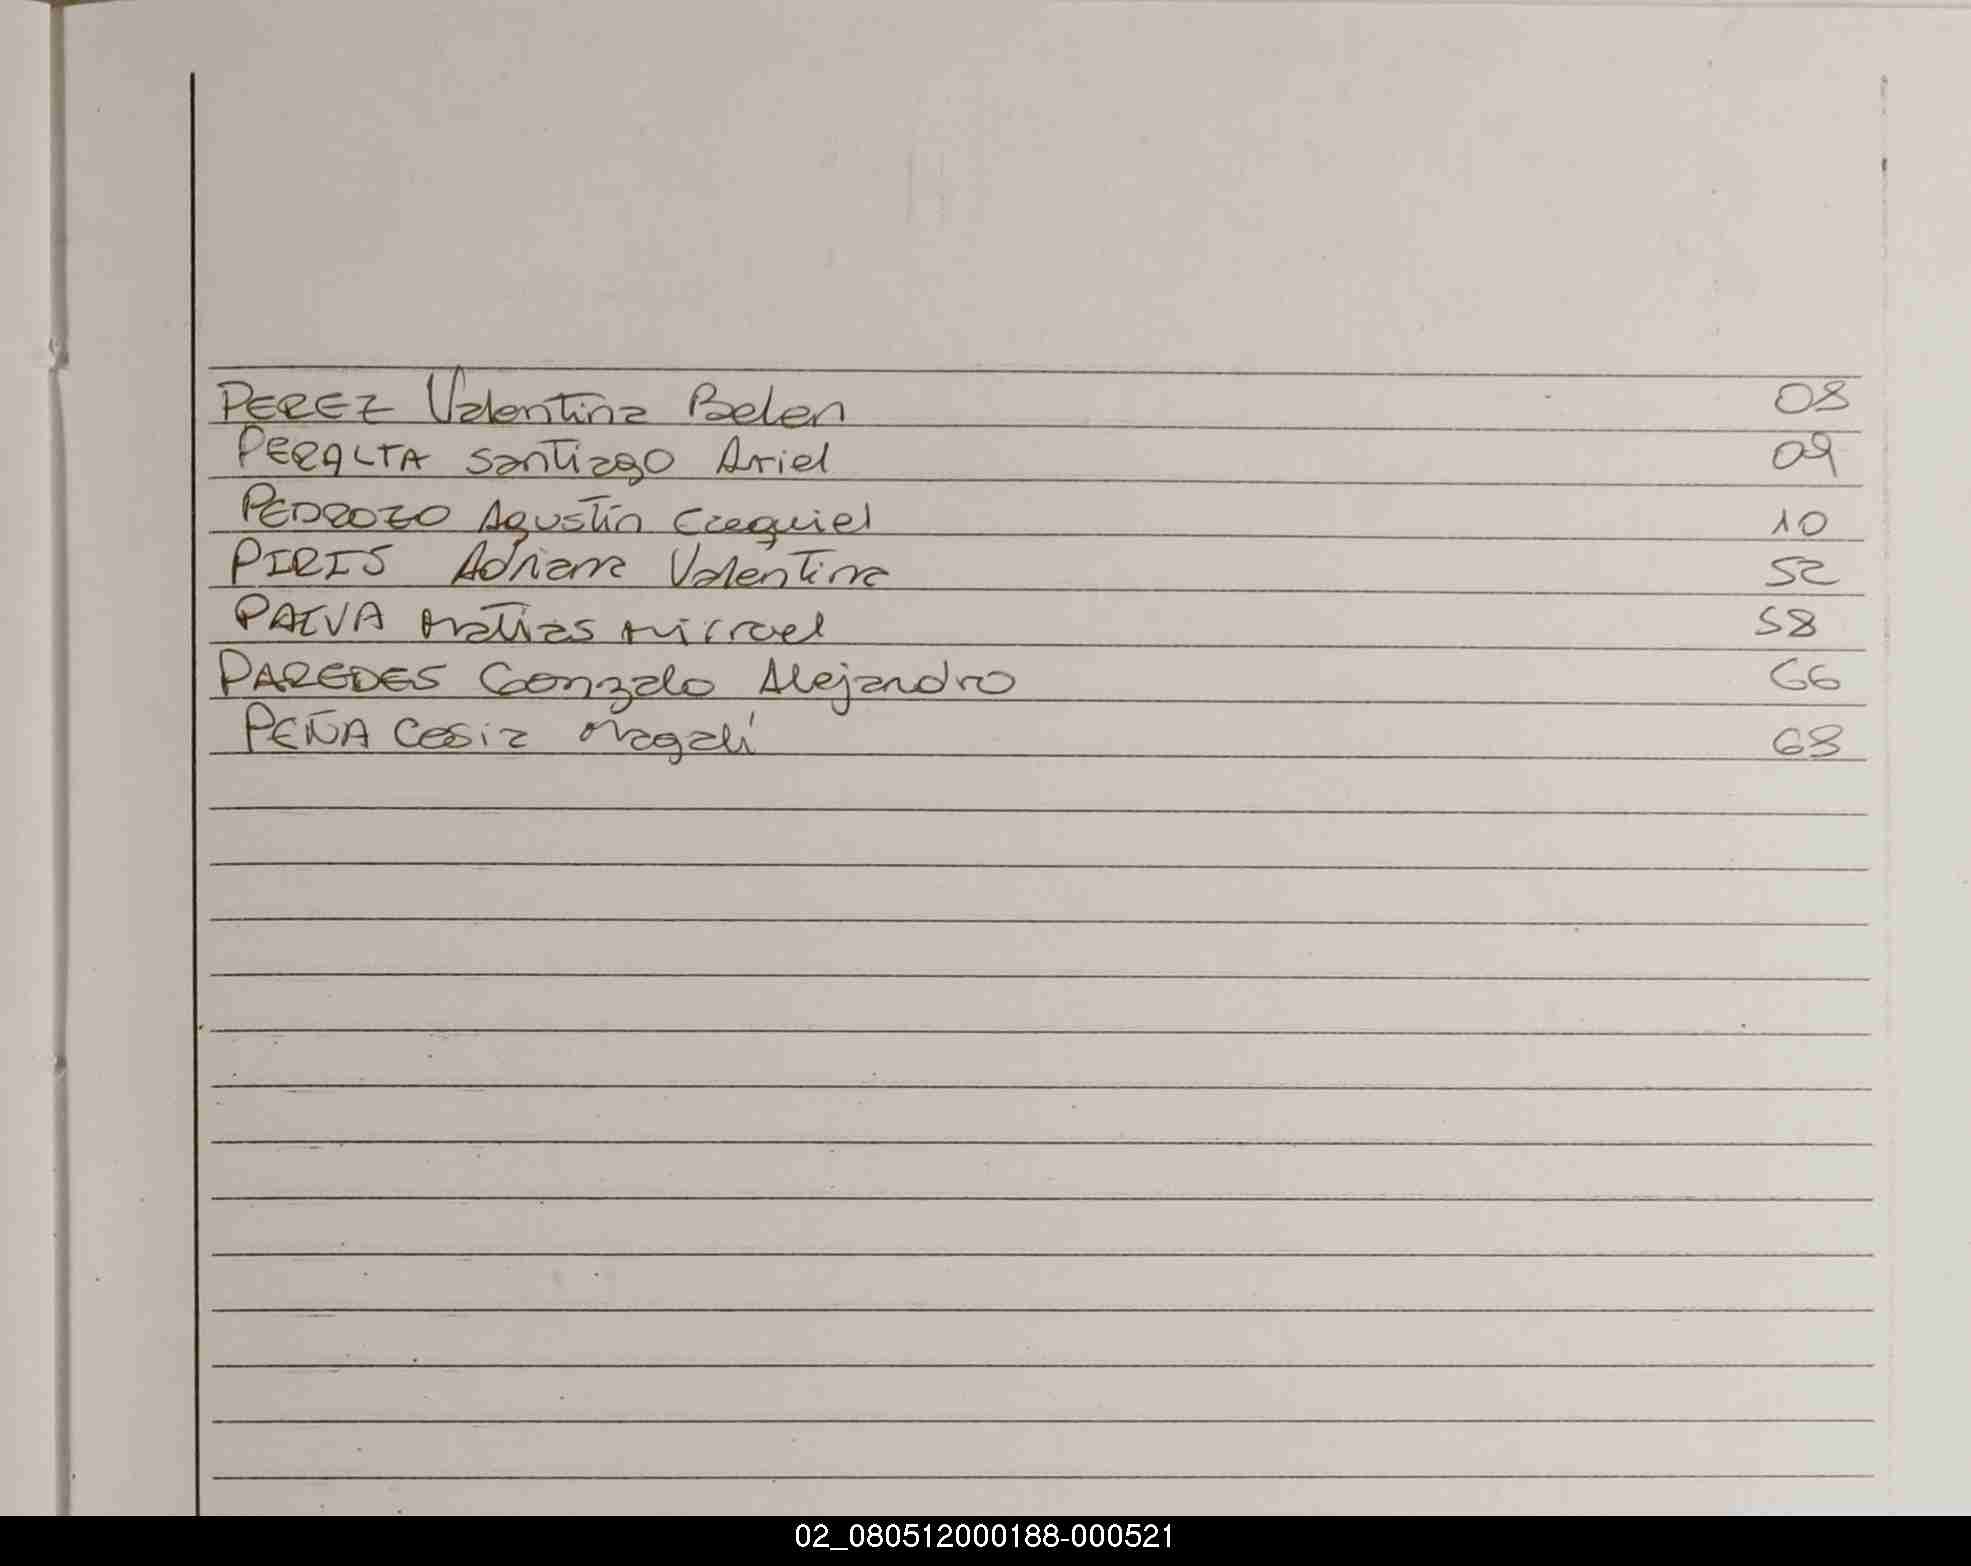 PEREZ Valentina Belen 08
PERALTA Santiago Ariel 09
PEDROZO Agustín Ezequiel 10
PIRIS Adriana Valentina 52
PAIVA Matias Micael 58
PAREDES Gonzalo Alejandro 66
PEÑA Cesia Magalí 68
02_080512000188-000521